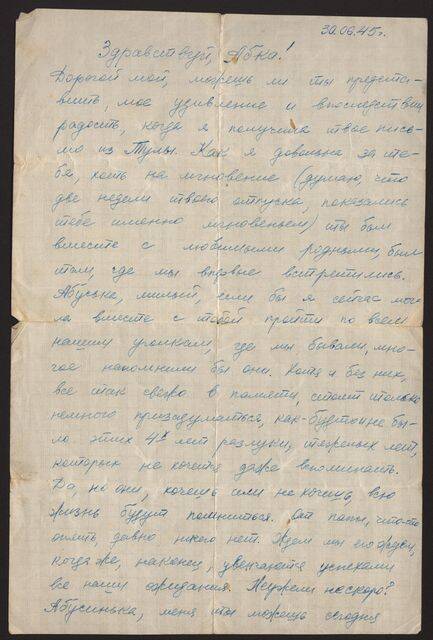 30.06.45г.
Здравствуй, Абка!
Дорогой мой, можешь ли ты предста-
вить, мое удивление и впоследствии
радость, когда я получила твое пись-
мо из Тулы. Как я довольна за те-
бя, хоть на мгновение (думаю, что
две недели твоего отпуска, показались
тебе именно мгновеньем) ты был
вместе с любимыми родными, был
там, где мы впервые встретились.
Абуська, милый, если бы я сейчас мог-
ла вместе с тобой пройти по всем
нашим уголкам, где мы бывали, мно-
гое напомнили бы они. Хотя и без них,
все так свежо в памяти, стоит только
немного призадуматься, как-будто и не бы-
ло этих 4х лет разлуки, тяжелых лет,
которых не хочется даже вспоминать.
Да, но они, хочешь или не хочешь, всю
жизнь будут помниться. От папы, что-то
опять давно ничего нет. Ждем мы его, ждем,
когда же, наконец, увенчаются успехами
все наши ожидания. Неужели не скоро?
Абусинька, меня ты можешь сегодня